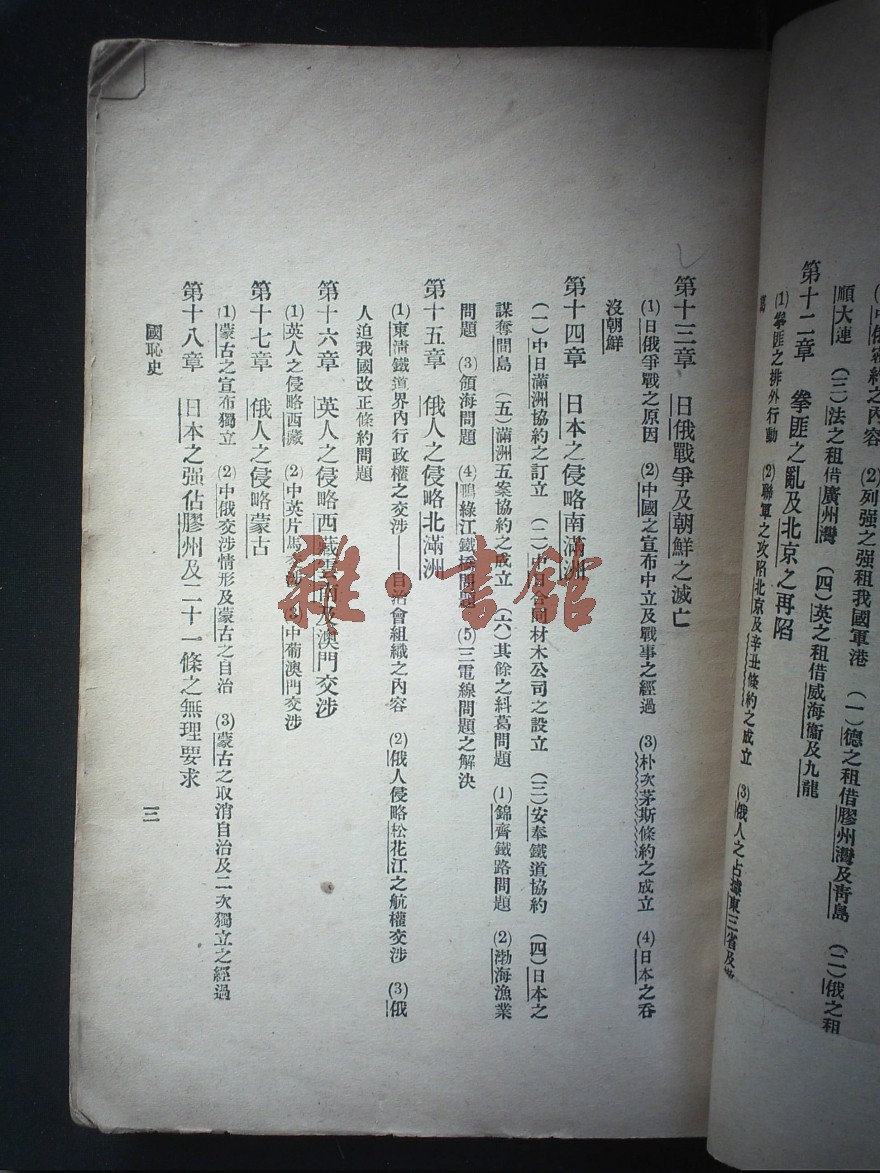 (2)列强之强租我國軍港 (一)德之租借膠州灣及靑島 (二)俄之租
順大連 (三)法之租借廣州灣 (四)英之租借威海衞及九龍
第十二章 拳匪之亂及北京之再陷
(1)拳匪之排外行動 (2)聯軍之攻陷北京及辛丑條約之成立 (3)俄人之占據東三省及
第十三章 日俄戰爭及朝鮮之滅亡
(1)日俄爭戰之原因 (2)中國之宣布中立及戰事之經過 (3)朴次茅斯條約之成立 (4)日本之吞
沒朝鮮
第十四章 日本之侵略南滿洲
(一)中日滿洲協約之訂立 (二)中日合同材木公司之設立 (三)安奉鐵道協約 (四)日本之
謀奪間島 (五)滿洲五案協約之成立 (六)其餘之糾葛問題 (1)錦齊鐵路問題 (2)渤海漁業
問題 (3)領海問題 (4)鴨綠江鐵橋問題 (5)三電線問題之解決
第十五章 俄人之侵略北滿洲
(1)東淸鐵道界內行政權之交涉——自治會組織之內容 (2)俄人侵略松花江之航權交涉 (3)俄
人迫我國改正條約問題
第十六章 英人之侵略西藏雲南及澳門交涉
(1)英人之侵略西藏 (2)中英片馬交涉 (3)中葡澳門交涉
第十七章 俄人之侵略蒙古
(1)蒙古之宣布獨立 (2)中俄交涉情形及蒙古之自治 (3)蒙古之取消自治及二次獨立之經過
第十八章 日本之强佔膠州及二十一條之無理要求
國恥史
三
雜·書館